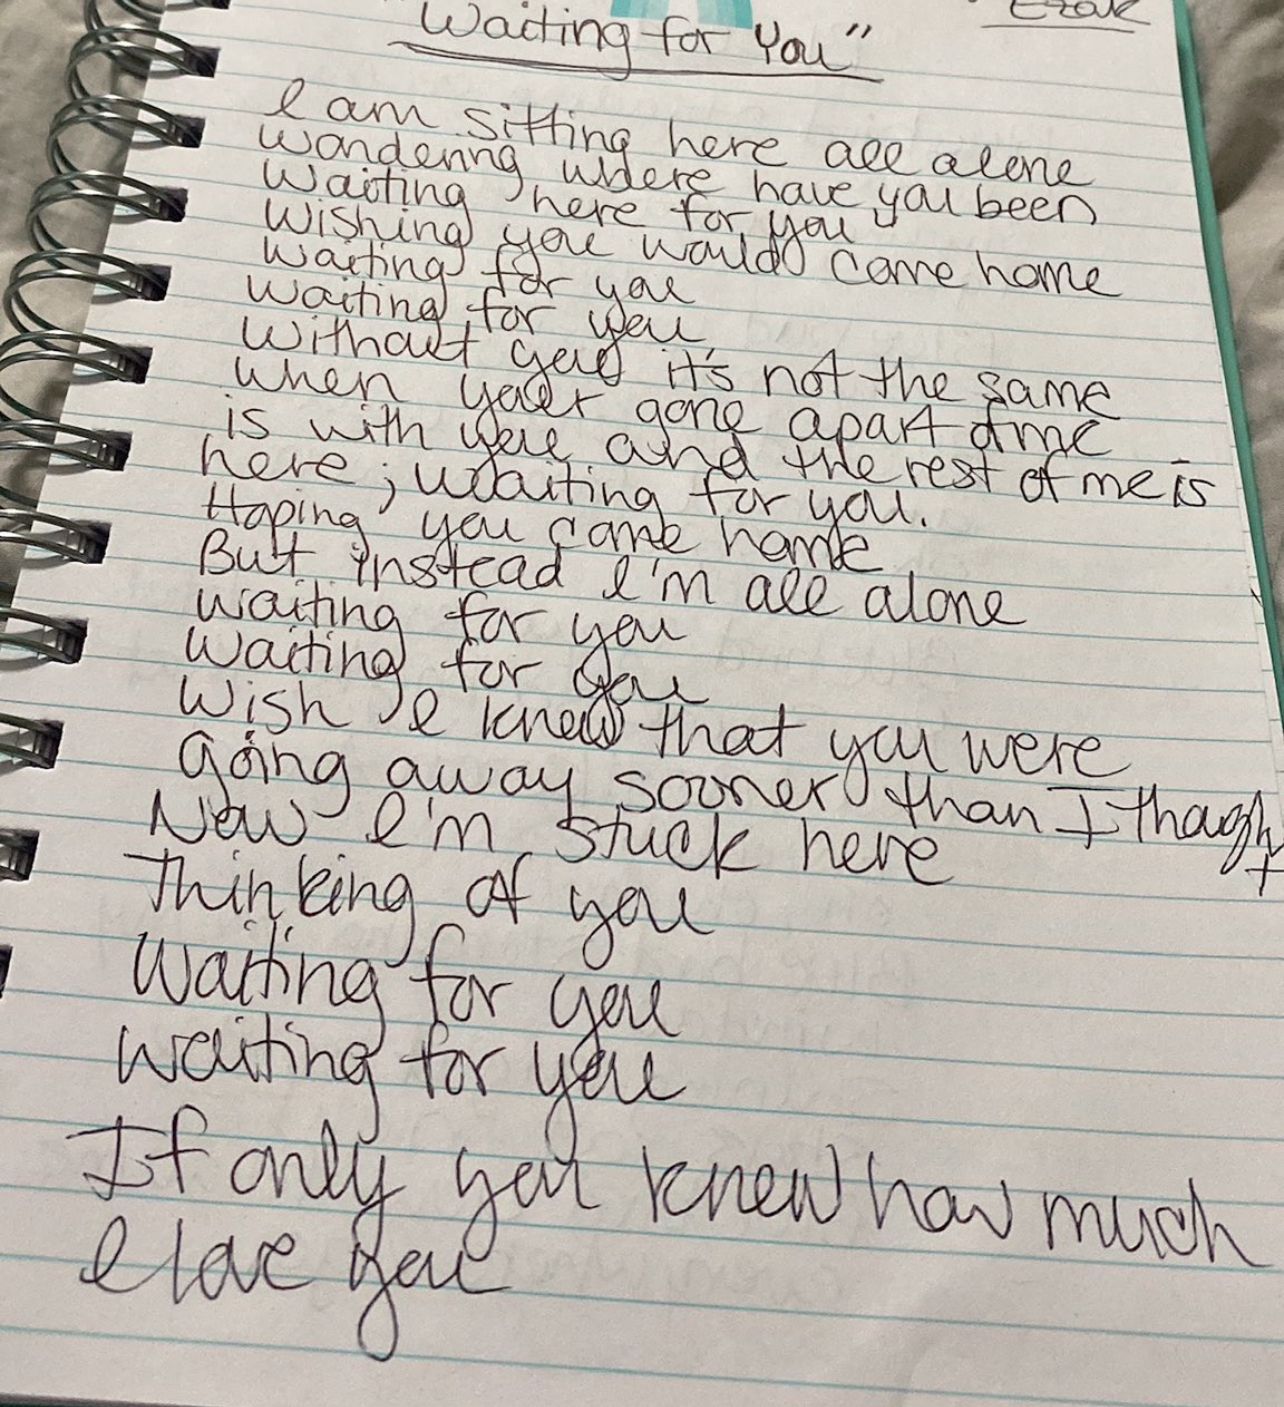 "Waiting for You"
I am sitting here all alone
wondering where have you been
Waiting here for you
Wishing you would come home
Waiting for you
Waiting for you
Without you it's not the same
When your gone apart of me
is with you and the rest of me is
here; waiting for you.
Hoping you come home
But instead I'm all alone
waiting for you
Waiting for you
Wish I knew that you were
going away sooner than I thought
Now I'm stuck here
Thinking of you
Waiting for you
waiting for you
If only you knew how much
I love you